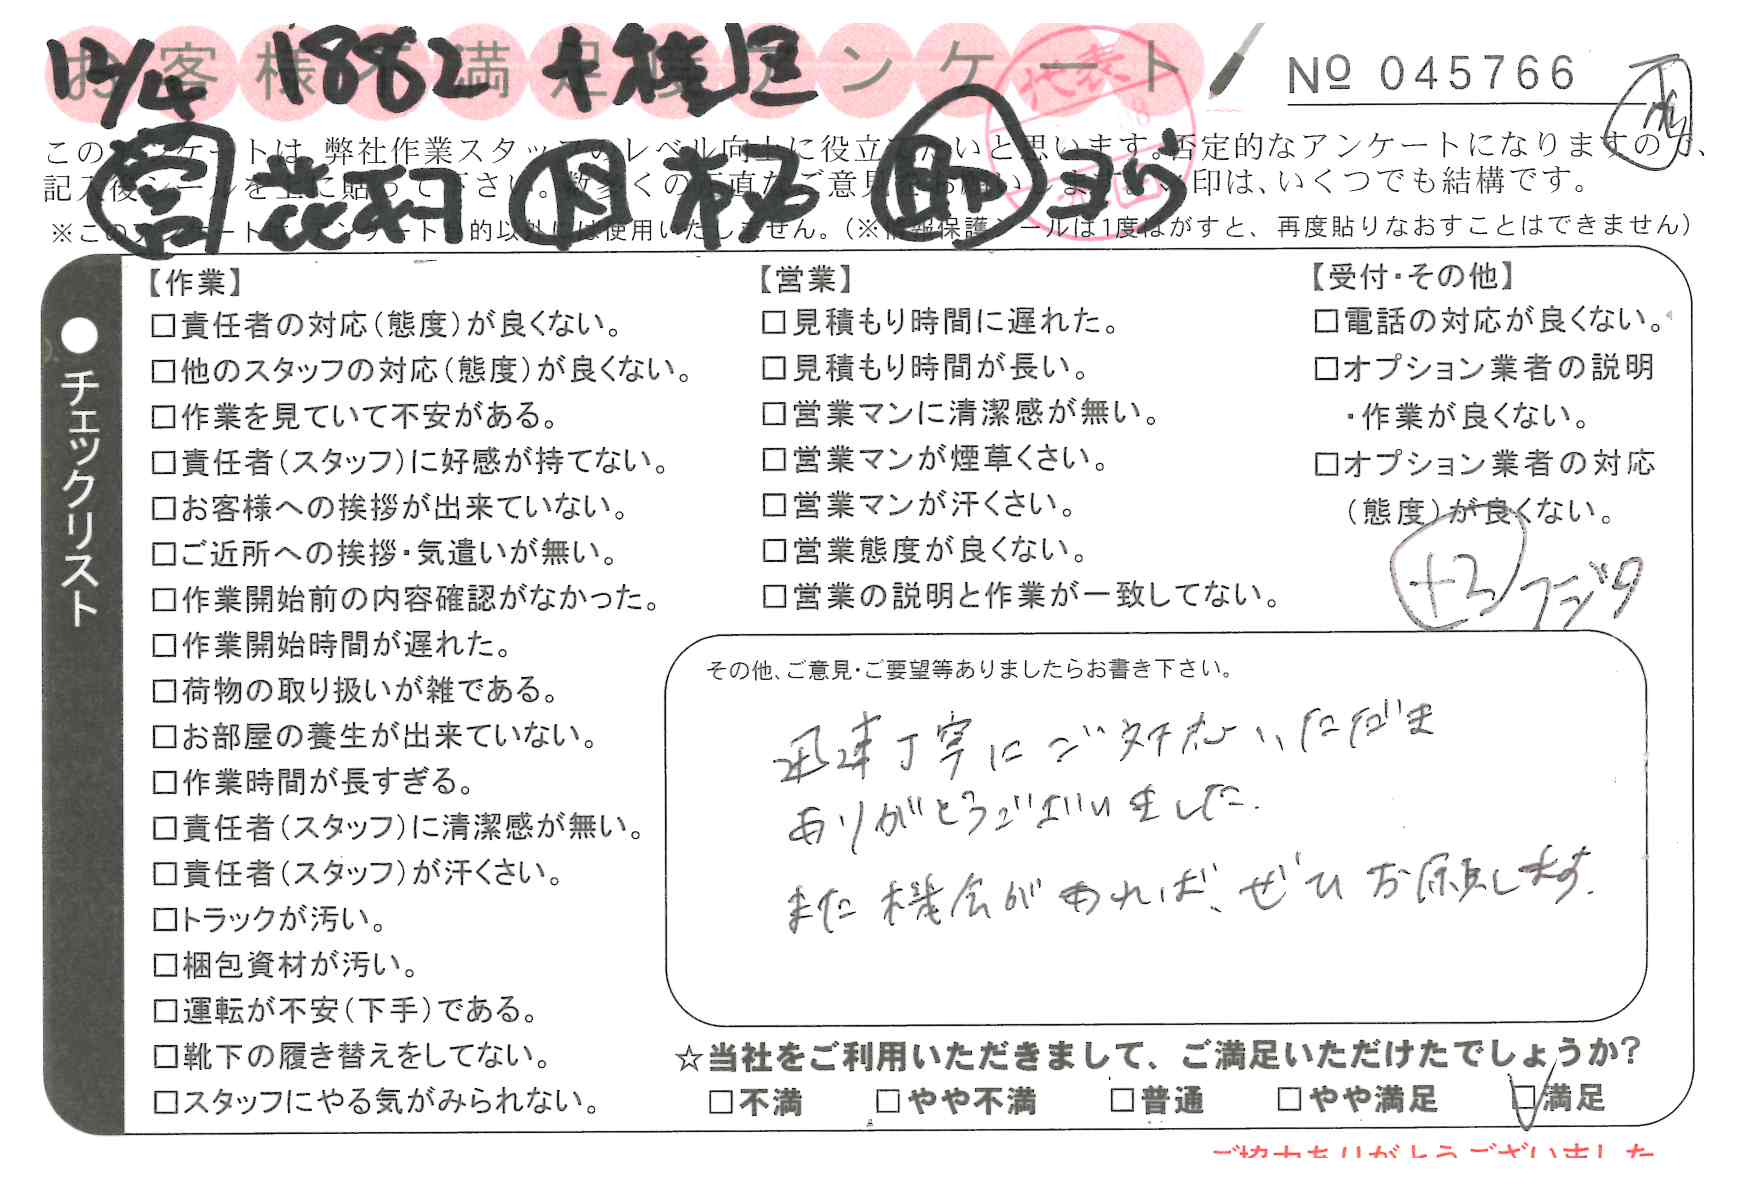 お客様不満足度アンケート
12/4 1882
№ 045766
このアンケートは、弊社作業スタッフのレベル向上に役立てたいと思います。否定的なアンケートになりますので、
記入後シールを上に貼って下さい。数多くの正直なご意見をお願いします。✓印は、いくつでも結構です。
営 花村
※このアンケートは、アンケート目的以外には使用いたしません。（※情報保護シールは1度はがすと、再度貼りなおすことはできません）
●チェックリスト
【作業】
□責任者の対応（態度）が良くない。
□他のスタッフの対応（態度）が良くない。
□作業を見ていて不安がある。
□責任者（スタッフ）に好感が持てない。
□お客様への挨拶が出来ていない。
□ご近所への挨拶・気遣いが無い。
□作業開始前の内容確認がなかった。
□作業開始時間が遅れた。
□荷物の取り扱いが雑である。
□お部屋の養生が出来ていない。
□作業時間が長すぎる。
□責任者（スタッフ）に清潔感が無い。
□責任者（スタッフ）が汗くさい。
□トラックが汚い。
□梱包資材が汚い。
□運転が不安（下手）である。
□靴下の履き替えをしてない。
□スタッフにやる気がみられない。
【営業】
□見積もり時間に遅れた。
□見積もり時間が長い。
□営業マンに清潔感が無い。
□営業マンが煙草くさい。
□営業マンが汗くさい。
□営業態度が良くない。
□営業の説明と作業が一致してない。
【受付・その他】
□電話の対応が良くない。
□オプション業者の説明
・作業が良くない。
□オプション業者の対応
（態度）が良くない。
その他、ご意見・ご要望等ありましたらお書き下さい。
迅速丁寧にご対応いただき
ありがとうございました.
また機会があれば、ぜひお願いします.
☆当社をご利用いただきまして、ご満足いただけたでしょうか？
□不満 □やや不満 □普通 □やや満足 ☑満足
ご協力ありがとうございました